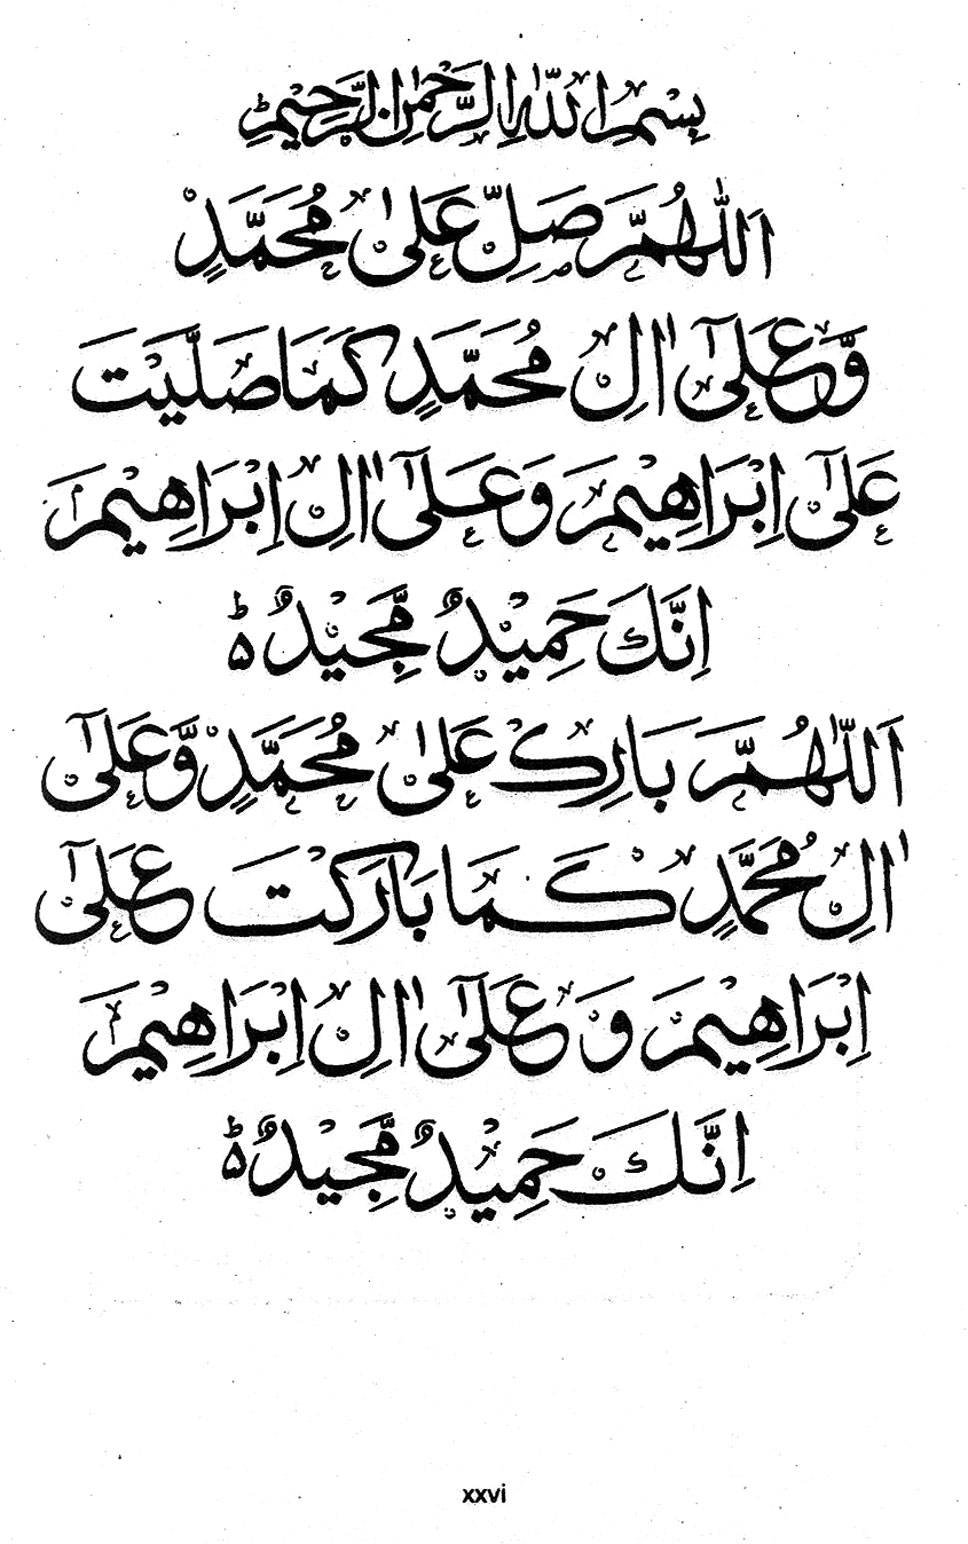 بِسْمِ اللّٰهِ الرَّحْمٰنِ الرَّحِيْمِ ؕ
اَللّٰهُمَّ صَلِّ عَلٰی مُحَمَّدٍ
وَّعَلٰٓی اٰلِ مُحَمَّدٍ كَمَا صَلَّيْتَ
عَلٰٓی اِبْرَاهِيْمَ وَعَلٰٓی اٰلِ اِبْرَاهِيْمَ
اِنَّكَ حَمِيْدٌ مَّجِيْدٌ ؕ۵
اَللّٰهُمَّ بَارِكْ عَلٰی مُحَمَّدٍ وَّعَلٰٓی
اٰلِ مُحَمَّدٍ كَمَا بَارَكْتَ عَلٰٓی
اِبْرَاهِيْمَ وَعَلٰٓی اٰلِ اِبْرَاهِيْمَ
اِنَّكَ حَمِيْدٌ مَّجِيْدٌ ؕ۵
xxvi